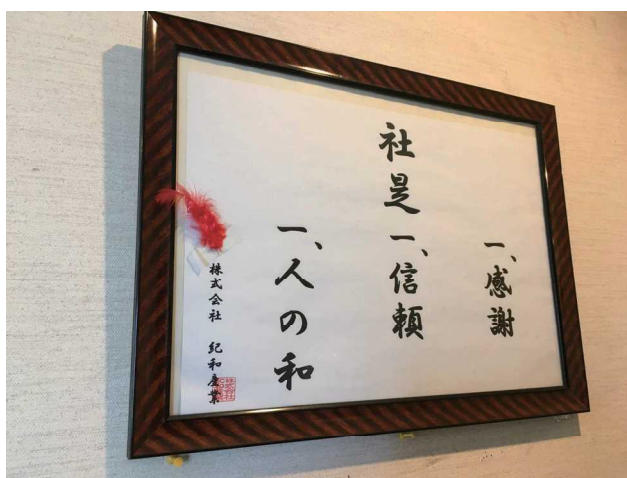 一、感謝
社是
一、信頼
一、人の和
株式会社 紀和産業